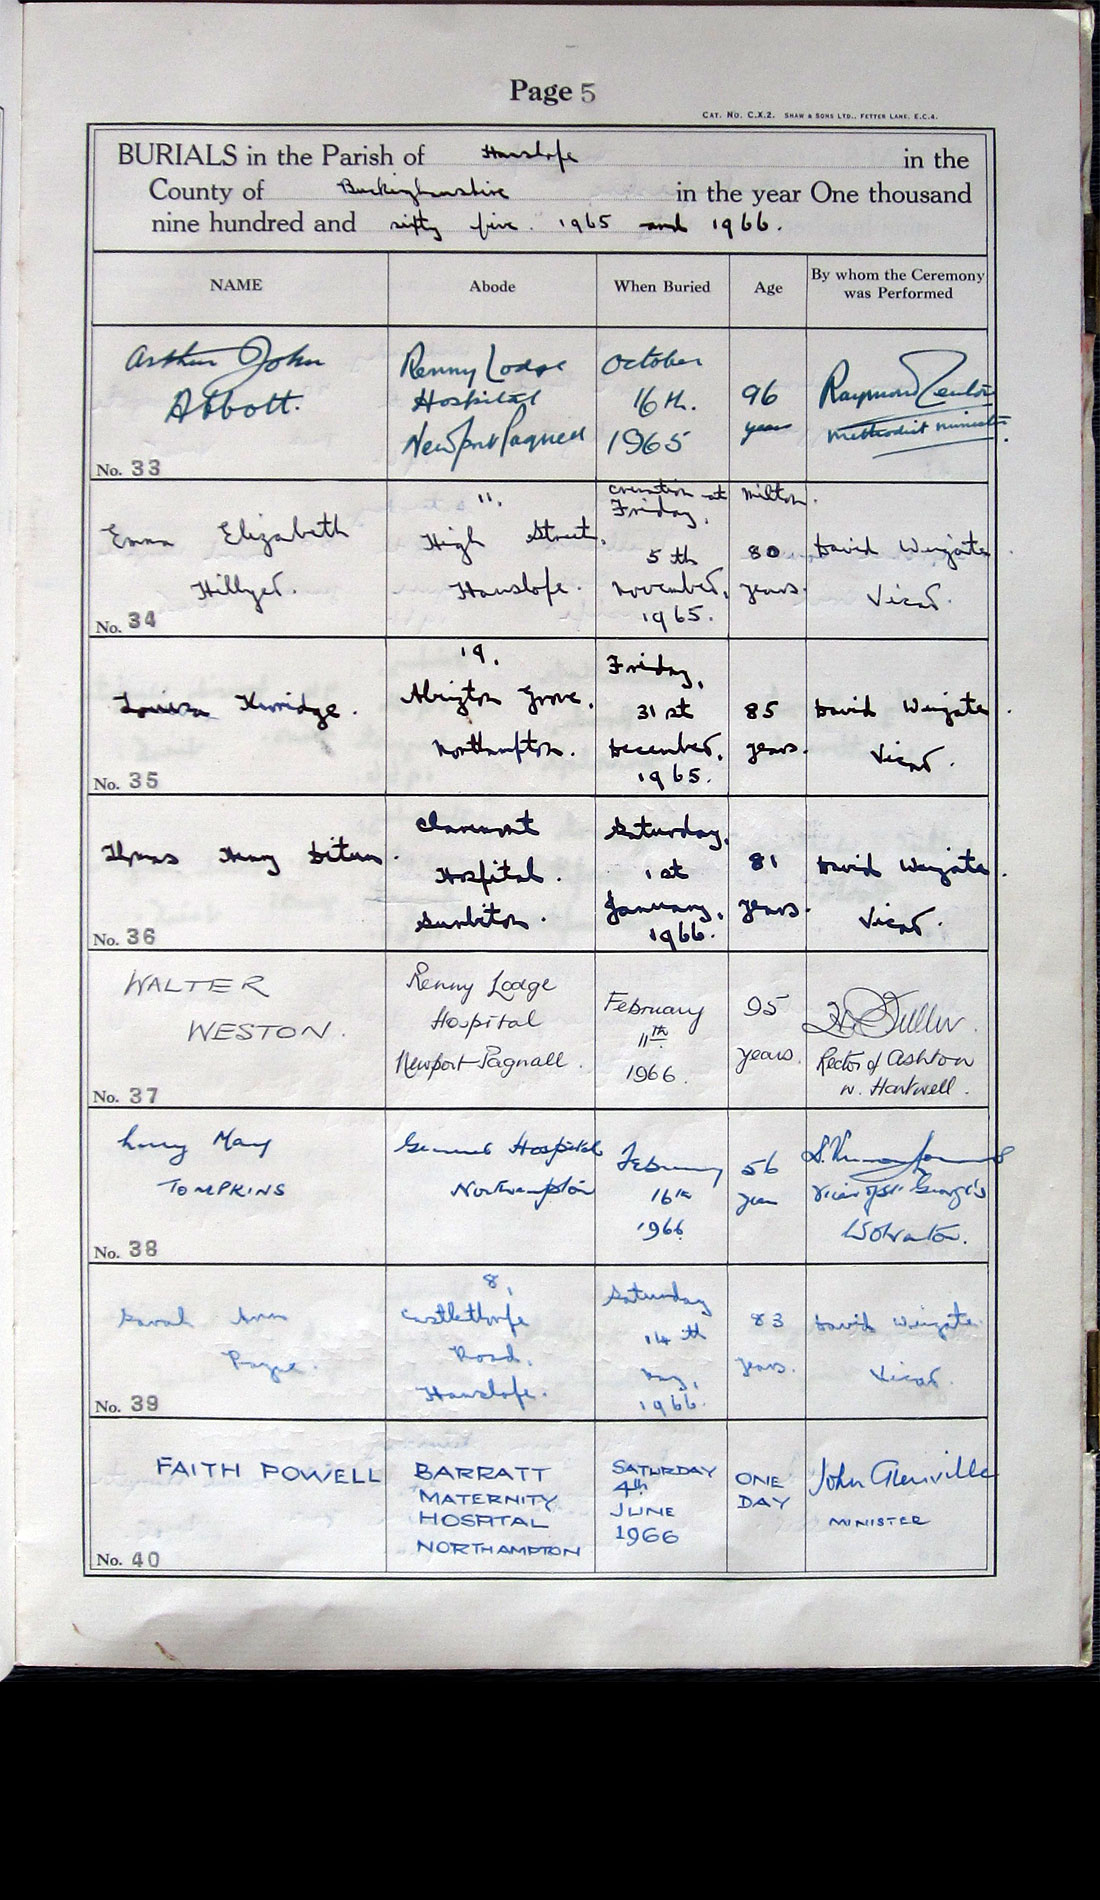 Page 5
CAT. NO. C.X.2. SHAW & SONS LTD., FETTER LANE, E.C.4.
BURIALS in the Parish of Hanslope in the
County of Buckinghamshire in the year One thousand
nine hundred and sixty five. 1965 and 1966.
NAME
Abode
When Buried
Age
By whom the Ceremony
was Performed
Arthur John
Abbott.
No. 33
Renny Lodge
Hospital
Newport Pagnell
October
16th.
1965
96
years
Raymond
Methodist Minister.
Emma Elizabeth
Hillyer.
No. 34
11,
High Street,
Hanslope.
cremation at Milton.
Friday,
5th
November,
1965.
80
years.
David Wingate
Vicar.
Louisa Kerridge.
No. 35
19,
Abington Grove,
Northampton.
Friday,
31st
December,
1965.
85
years.
David Wingate.
Vicar.
Thomas Henry
No. 36
Claremont
Hospital.
Surbiton.
Saturday,
1st
January,
1966.
81
years.
David Wingate.
Vicar.
WALTER
WESTON.
No. 37
Renny Lodge
Hospital
Newport Pagnall.
February
11th
1966.
95
years.
Rector of Ashton
w. Hartwell.
Lucy May
TOMPKINS
No. 38
General Hospital
Northampton
February
16th
1966
56
years
Vicar of St George's
Wolverton.
Sarah Ann
Payne.
No. 39
8,
Castlethorpe
Road,
Hanslope.
Saturday
14th
May,
1966.
83
years.
David Wingate.
Vicar.
FAITH POWELL
No. 40
BARRATT
MATERNITY
HOSPITAL
NORTHAMPTON
SATURDAY
4th
JUNE
1966
ONE
DAY
John Glenville
MINISTER